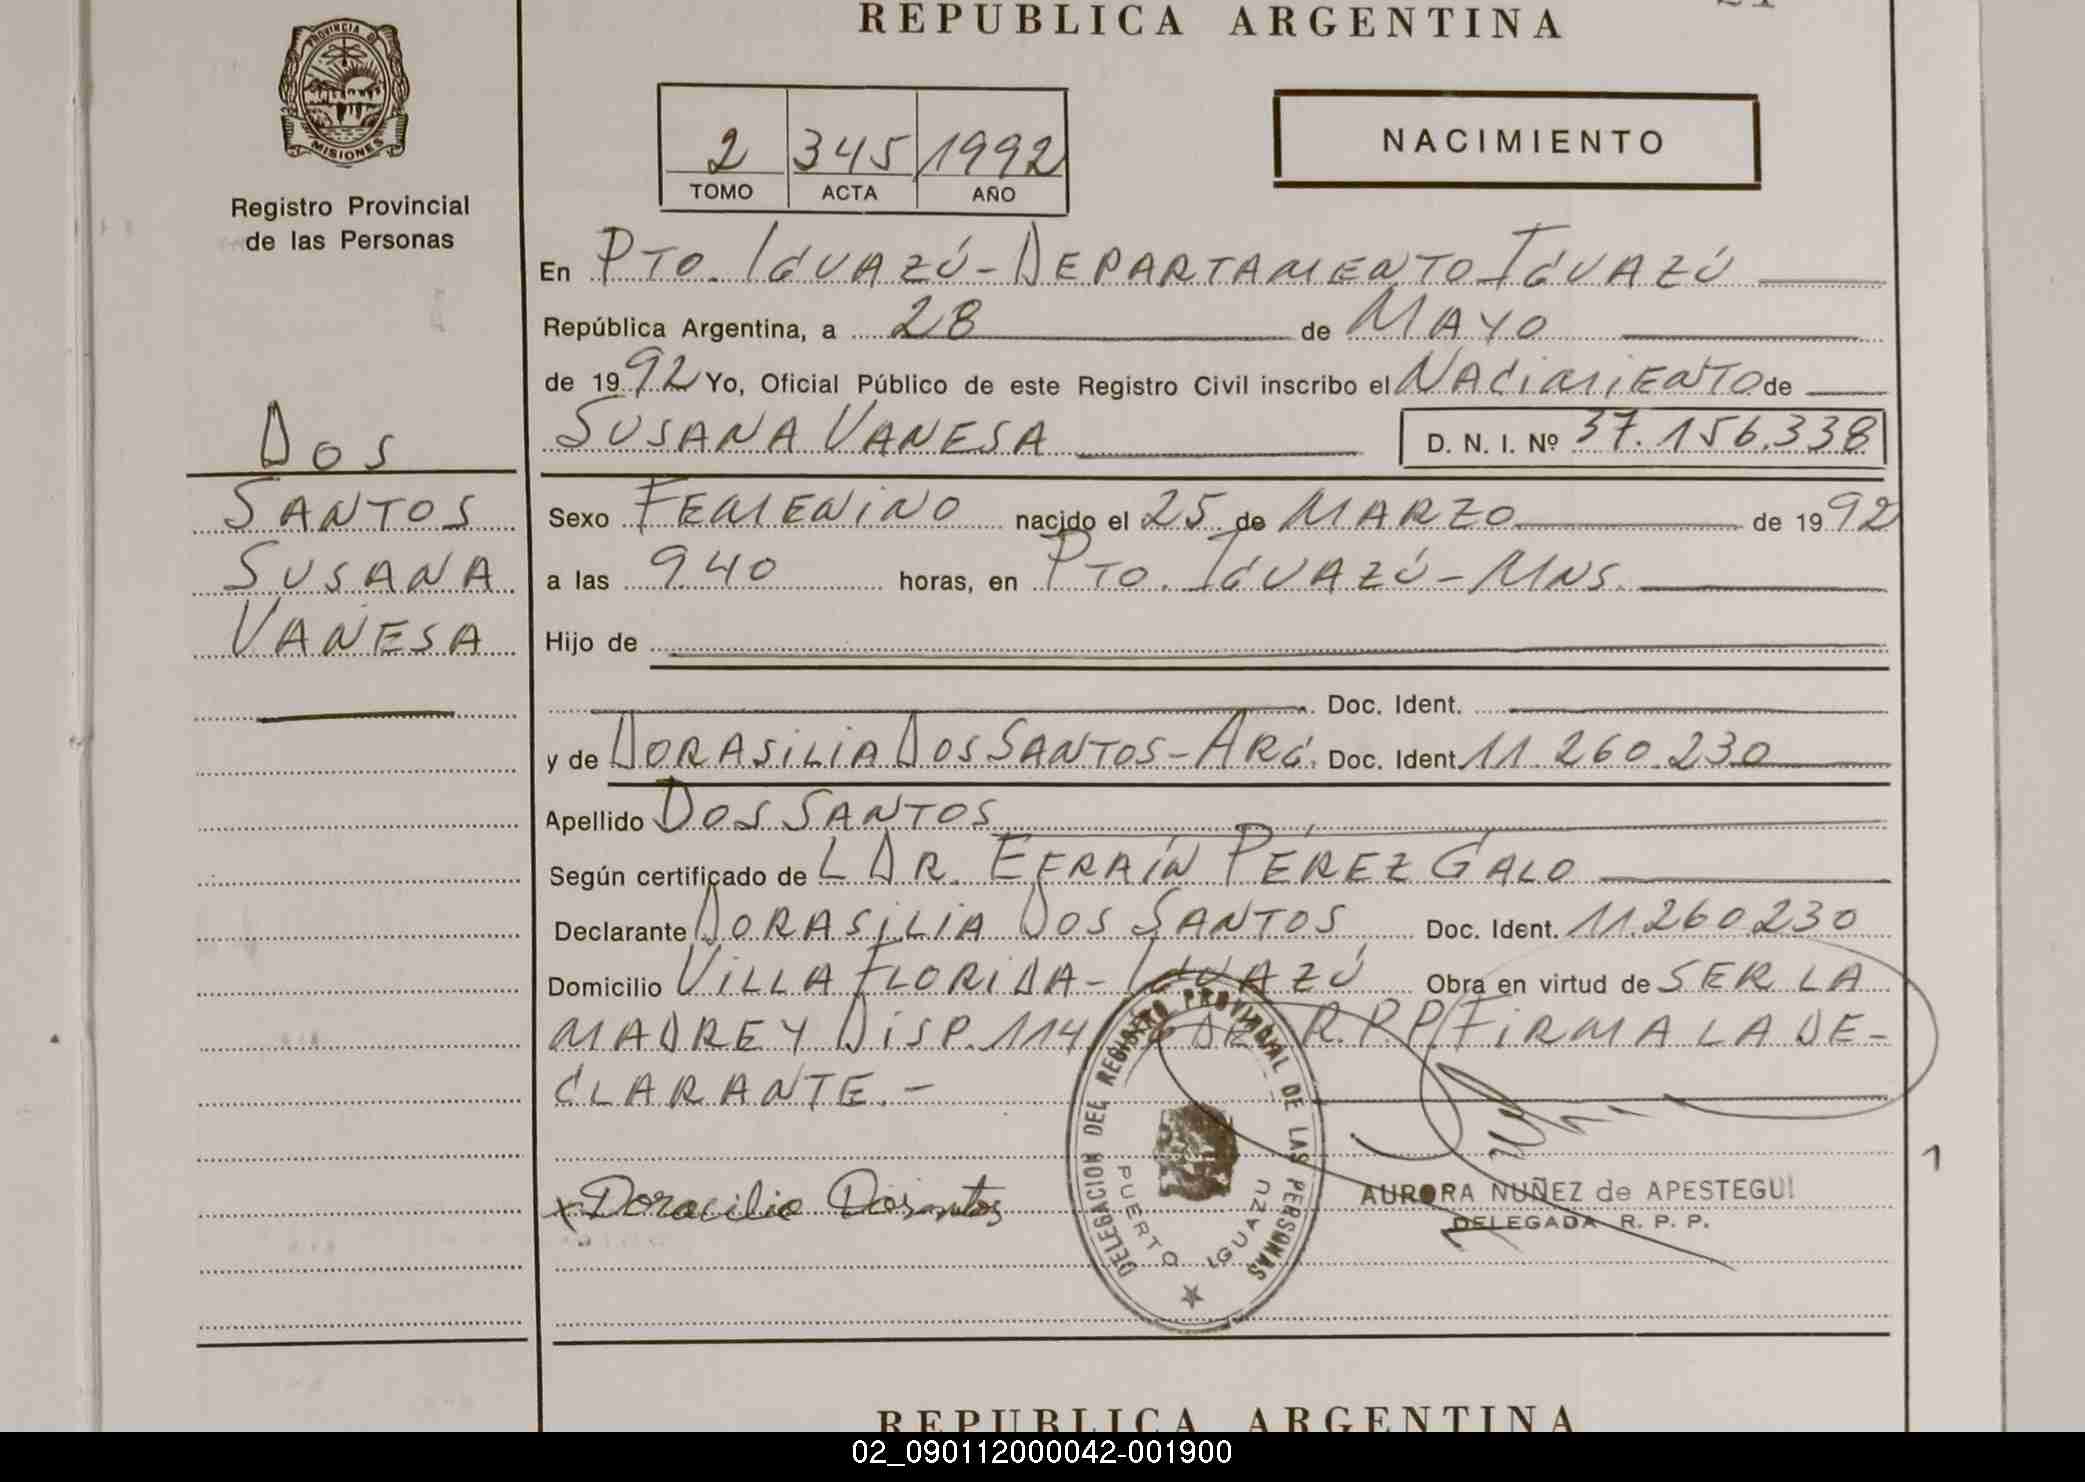 REPUBLICA ARGENTINA
PROVINCIA D
MISIONES
Registro Provincial
de las Personas
2 345 1992
TOMO ACTA AÑO
NACIMIENTO
En PTO. IGUAZÚ - DEPARTAMENTO IGUAZÚ
República Argentina, a 28 de MAYO
de 1992 Yo, Oficial Público de este Registro Civil inscribo el NACIMIENTO de
SUSANA VANESA D. N. I. Nº 37.156.338
DOS
SANTOS
SUSANA
VANESA
Sexo FEMENINO nacido el 25 de MARZO de 1992
a las 9.40 horas, en PTO. IGUAZÚ - MNS.
Hijo de
Doc. Ident.
y de DORASILIA DOS SANTOS - ARG. Doc. Ident. 11.260.230
Apellido DOS SANTOS
Según certificado de L DR. EFRAÍN PÉREZ GALO
Declarante DORASILIA DOS SANTOS Doc. Ident. 11.260.230
Domicilio VILLA FLORIDA - IGUAZÚ Obra en virtud de SER LA
MADRE Y DISP. 114 R.P.P. FIRMA LA DE-
CLARANTE. -
x Doracilio Dosantos
DELEGACION DEL REGISTRO PROVINCIAL DE LAS PERSONAS
PUERTO IGUAZU
AURORA NUÑEZ de APESTEGUI
DELEGADA R. P. P.
1
REPUBLICA ARGENTINA
02_090112000042-001900